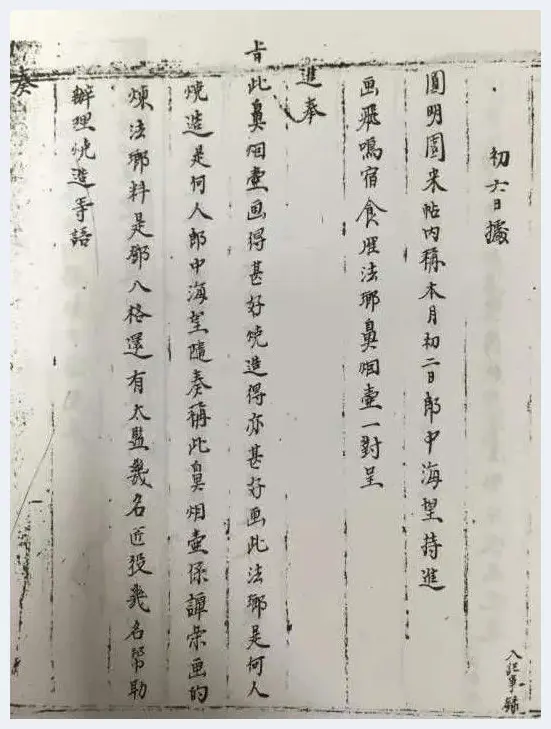 入記事錄
初六日據
圓明園来帖内稱本月初二日郎中海望持進
画飛鳴宿食雁法瑯鼻烟壺一對呈
進奉
旨此鼻烟壺画得甚好燒造得亦甚好画此法瑯是何人
燒造是何人郎中海望隨奏稱此鼻烟壺係譚榮画的
煉法瑯料是鄧八格還有太監幾名匠役幾名幫助
辦理燒造等語
奏